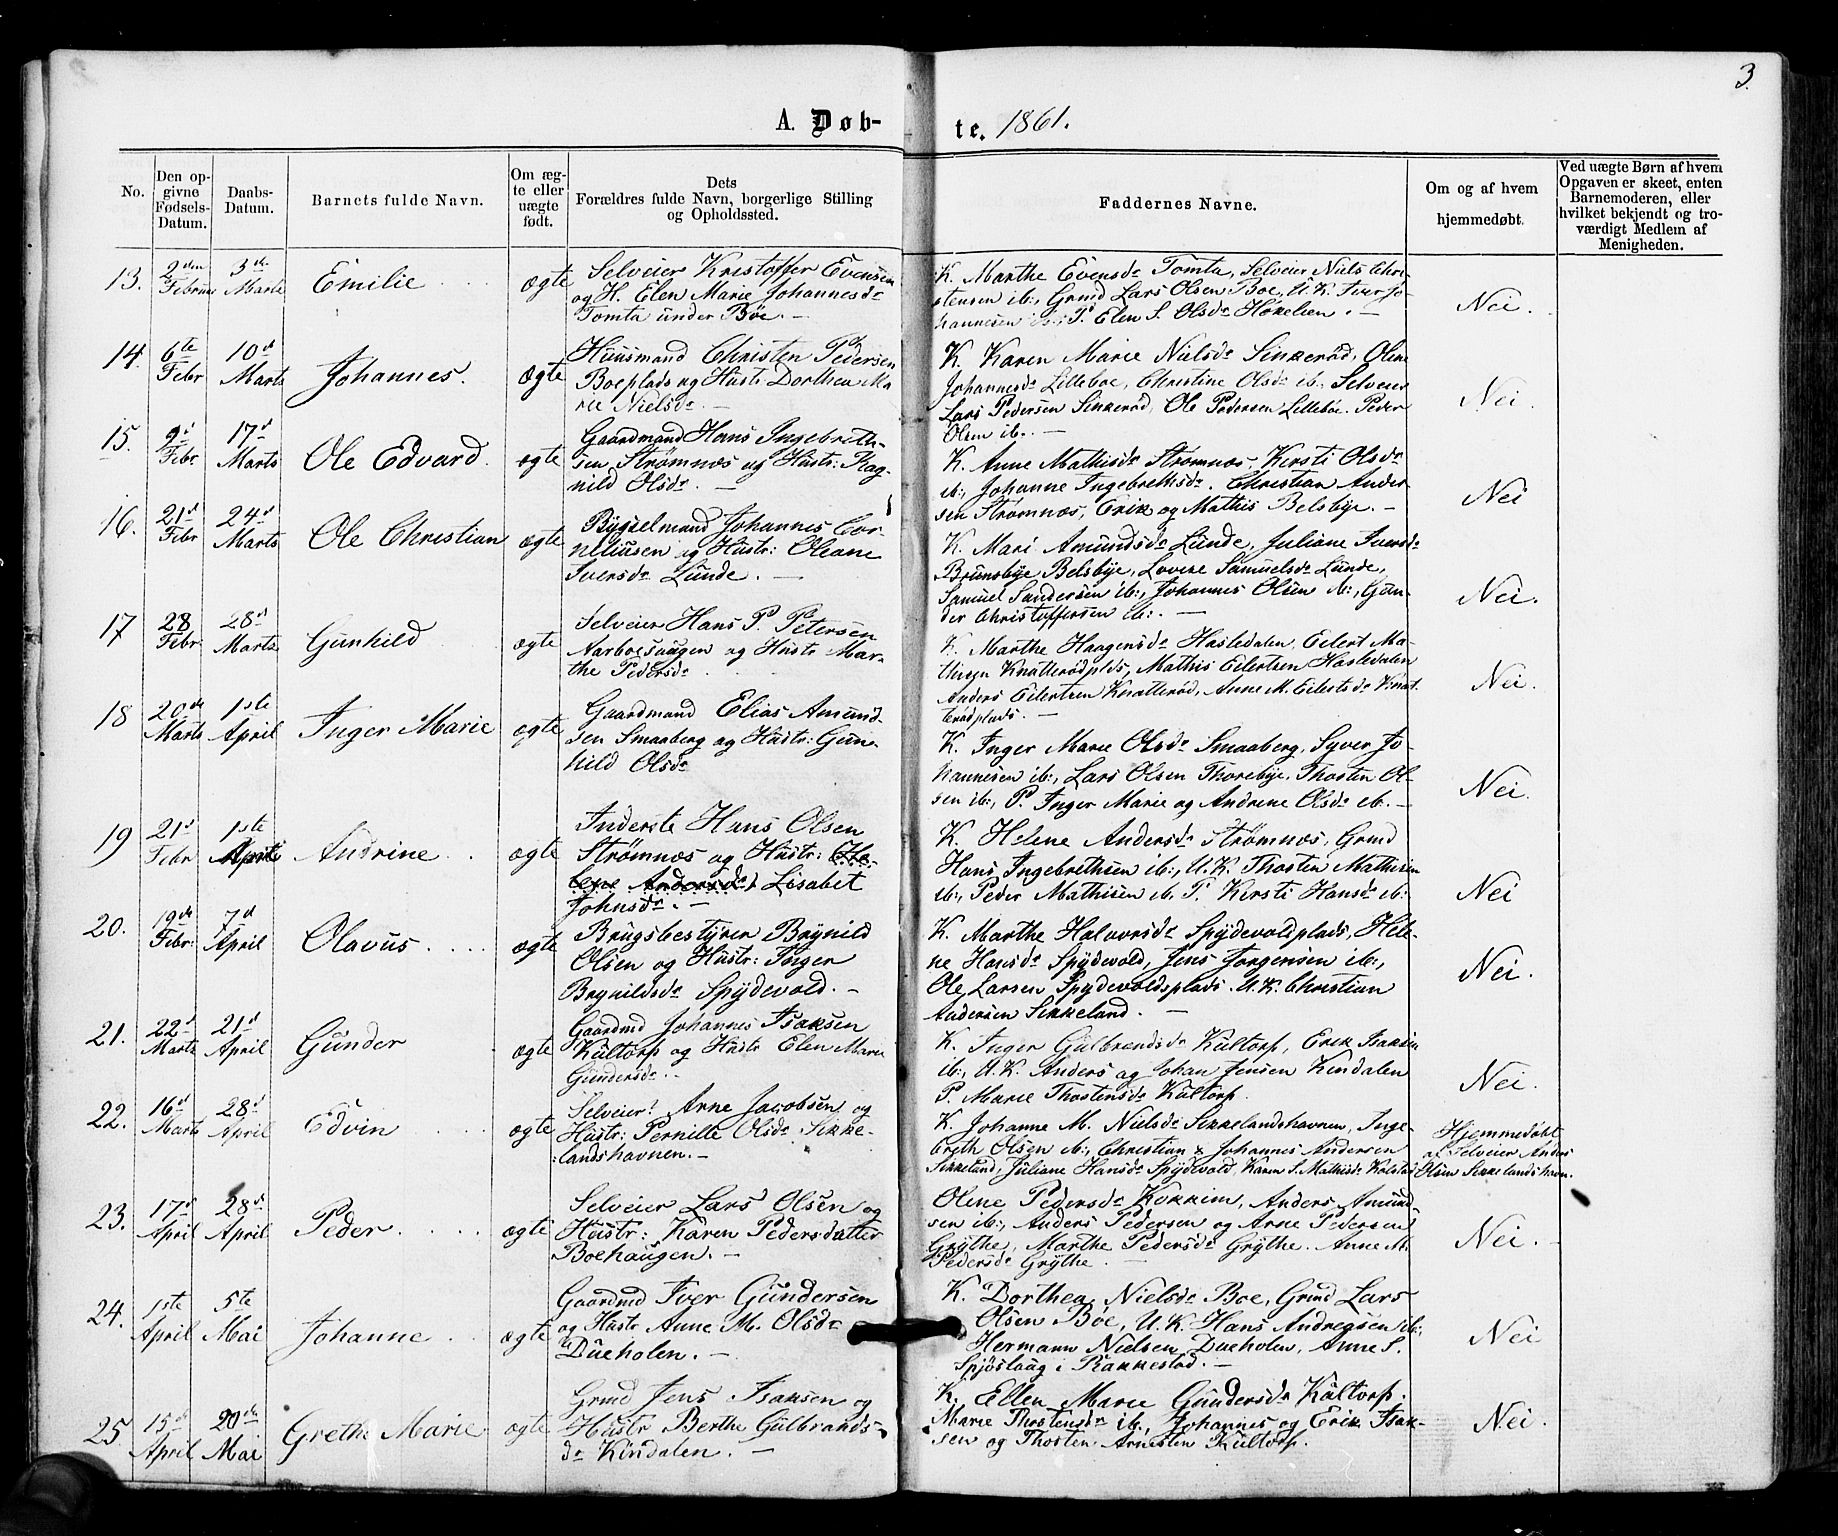 3.
A. Døb- te. 1861.
No.
Den opgivne Fødsels-Datum.
Daabs-Datum.
Barnets fulde Navn.
Om ægte eller uægte født.
Dets Forældres fulde Navn, borgerlige Stilling og Opholdssted.
Faddernes Navne.
Om og af hvem hjemmedøbt.
Ved uægte Børn af hvem Opgaven er skeet, enten Barnemoderen, eller hvilket bekjendt og troværdigt Medlem af Menigheden.
13. 2den Februar 3die Marts Emilie ægte
Selveier Kristoffer Evensen
og H. Elen Marie Johannesdr
Tomta under Böe. —
K. Marthe Evensdr Tomta, Selveier Niels Chri-
stensen ib:, Grmd Lars Olsen Boe, U.K. Iver Jo-
hannesen ib:, P. Elen S. Olsdr Hökelien. —
Nei.
14. 6te Febr 10d Marts Johannes. ægte
Huusmand Christen Pedersen
Boeplads og Hustr: Dorthea Ma
rie Nielsdr. —
K. Karen Marie Nielsdr Sikkeröd, Oline
Johannesdr Lilleboe, Christine Olsdr ib:, Selveier
Lars Pedersen Sikkeröd, Ole Pedersen Lilleböe. Peder
Olsen ib:. —
Nei.
15. 9d Febr 17d Marts Ole Edvard. ægte
Gaardmand Hans Ingebreth-
sen Strømnæs og Hustr: Rag-
nild Olsdr. —
K. Anne Mathisdr Strömnæs, Kersti Olsdr
ib:, Johanne Ingebrethsdr. Christian Ander-
sen Strömnæs, Erik og Mathis Belsbye. —
Nei
16. 21d Febr 24d Marts Ole Christian ægte
Bygselmand Johannes Cor-
neliusen og Hustr: Oleane
Iversdr Lunde. —
K. Mari Amundsdr Lunde, Juliane Iversdr
Brunsbye, Belsbye, Lovise Samuelsdr Lunde,
Samuel Sandersen ib:, Johannes Olsen ib:, Gun-
der Christoffersen ib:. —
Nei.
17 28 Febr 28d Marts Gunhild ægte
Selveier Hans P. Petersen
Aarboesaugen og Hustr Mar-
the Pedersdr
K. Marthe Haagensdr Hasledalen, Eilert Ma-
thisen Knatterödplds, Mathis Eilertsen Hasledalen
Anders Eilertsen Knatteröd, Anne M. Eilertsdr Knat
terödplads. —
Nei.
18 20de Marts 1ste April Inger Marie ægte
Gaardmand Elias Amund-
sen Smaaberg og Hustr: Gun-
hild Olsdr
K. Inger Marie Olsdr Smaaberg, Syver Jo-
hannesen ib:, Lars Olsen Thorebye, Thosten Ol-
sen ib:, P. Inger Marie og Andrene Olsdr ib. —
Nei.
19 21d Febr 1ste April Andrine ægte
Inderste Hans Olsen
Strømnæs og Hustr: (He-
lene Andersdr) Lisabet
Johnsdr. —
K. Helene Andersdr Strømnæs, Grmd
Hans Ingebrethsen ib:, U.K. Thosten Mathisen
ib:, Peder Mathisen ib. P. Kersti Hansdr ib:
Nei
20. 19de Febr: 7d April Olavus. ægte
Brugsbestyrer Brynild
Olsen og Hustr: Inger
Brynildsdr Spydevold. —
K. Marthe Halvorsdr Spydevoldplads, Hele-
ne Hansdr Spydevold, Jens Jorgensen ib:,
Ole Larsen Spydevoldsplads. U.K. Christian
Andersen Sikkeland. —
Nei.
21. 22d Marts 21d April Gunder ægte
Gaardmd Johannes Isaksen
Kultorp og Hustr Elen Marie
Gundersdr. —
K. Inger Gulbrandsdr Kultorp, Erik Isaksen
ib:, U.K. Anders og Johan Jensen Kindalen
P. Marie Thostensdr Kultorp.
Nei.
22. 16d Marts 28d April Edvin ægte
Selveier: Arne Jacobsen og
Hustr: Pernille Olsdr Sikke-
landshavnen. —
K. Johanne M. Nielsdr Sikkelandshavnen, Inge-
breth Olsen ib:, Christian & Johannes Andersen
Sikkeland, Juliane Hansdr Spydevold, Karen S. Mathisdr Kolstad
Hjemmedöbt
af Selveier Anders
Olsen Sikkelandshavn.
23. 17d April 28d April Peder. ægte
Selveier Lars Olsen og
Hustr: Karen Pedersdatter
Boehaugen. —
Oline Pedersdr Kokkim, Anders Amund-
sen ib:, Anders Pedersen og Arne Pedersen
Grythe, Marthe Pedersdr Grythe. Anne M.
Pedersdr Grythe. —
Nei.
24. 1ste April 5te Mai Johanne ægte
Gaardmd Iver Gundersen
og Hustr Anne M. Olsdr
Dueholen. —
K. Dorthea Nielsdr Boe, Grmd Lars
Olsen Böe, U.K. Hans Andreasen ib:,
Hermann Nielsen Dueholen, Anne S.
Spjöslaug i Rakkestad. —
Nei
25 15d April 20de Mai Grethe Marie ægte
Grmd Jens Isaksen og
Hustr Berthe Gulbrands-
dr Kindalen. —
K. Ellen Marie Gundersdr Kultorp.
Marie Thostensdr ib:, Johannes og Erik Isak-
sen og Thosten Arnesten Kultorp.
Nei.